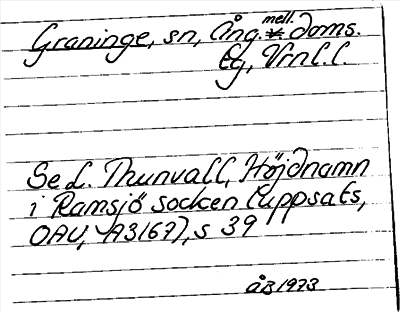 Graninge, sn, Ång. mell. doms.
lg, Vrnl.l.
Se L. Thunvall, Höjdnamn
i Ramsjö socken (uppsats,
OAU, A3167), s 39
åB 1973